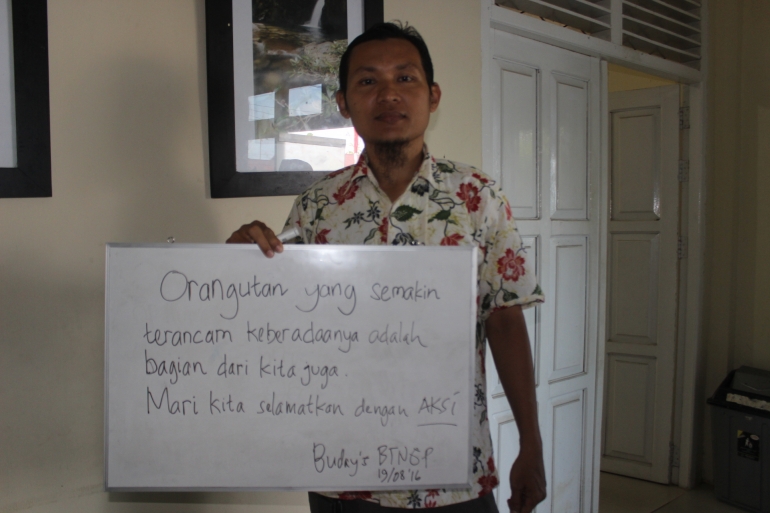 Orangutan yang semakin
terancam keberadaanya adalah
bagian dari kita juga.
Mari kita selamatkan dengan AKSi
Budry's BTNGP
19/08 '16